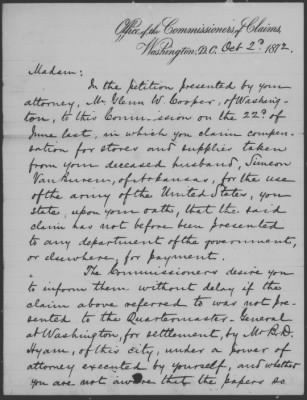 Office of the Commissioners of Claims,
Washington, D.C. Oct 2d 1872.
Madam:
In the petition presented by your
attorney, Mr Glenn W. Cooper, of Washing-
ton, to this Commission on the 22d of
June last, in which you claim compen-
sation for stores and supplies taken
from your deceased husband, Simeon
Van Kuren, of Arkansas, for the use
of the army of the United States, you
state, upon your oath, that the said
claim has not before been presented
to any department of the government,
or elsewhere, for payment.
The Commissioners desire you
to inform them without delay if the
claim above referred to was not pre-
sented to the Quartermaster-General
at Washington, for settlement, by Mr R.D.
Hyam, of this city, under a power of
attorney executed by yourself, and whether
you are not aware that the papers so